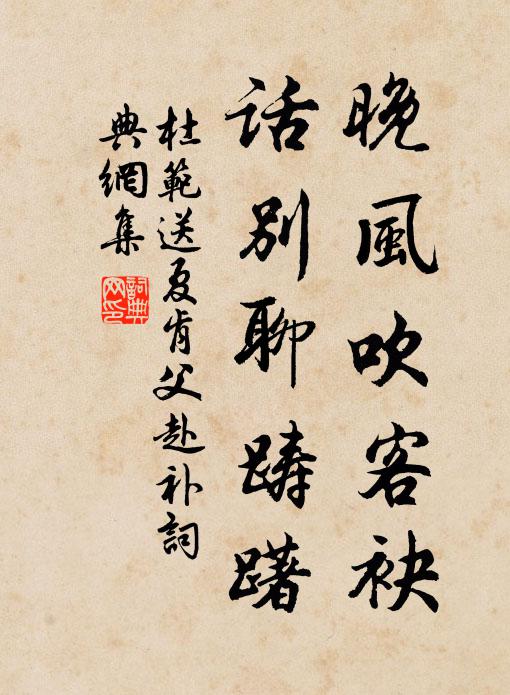 晚風吹客袂
话別聊踌躇
杜範送夏肯父赴补詞
典網集
詞典
网印